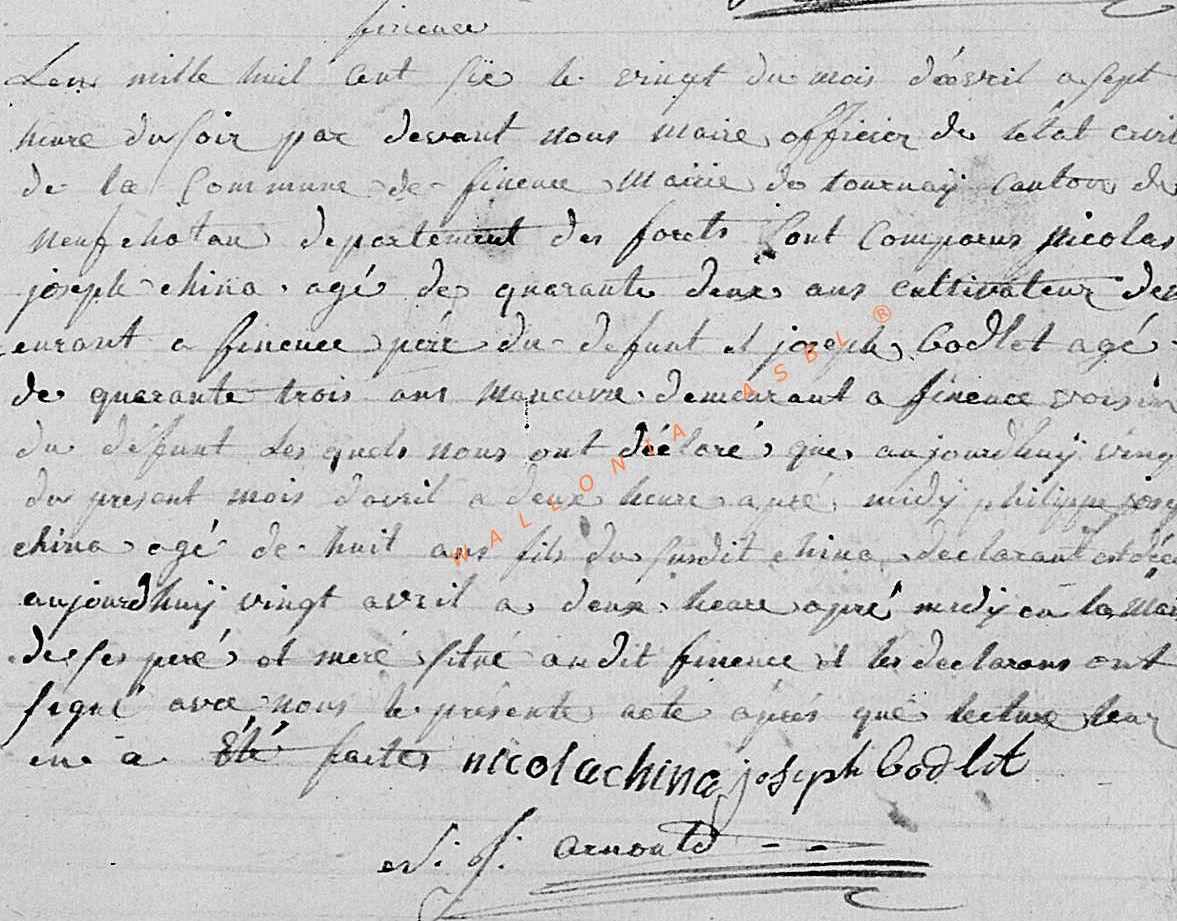 finence
Lens mille huil cent sie le vingt du mois d'avril a sept
heure du soir par devant nous maire officier de l'état civil
de la Commune de finence Mairie de tournay Canton de
neufchotau departement des forets Sont Comparus nicolas
joseph china agé de quarante deux ans cultivateur dem
eurant a finence péré du defunt et joseph Godlet agé
de quarante trois ans manœuvre demeurant a finence voisin
du défunt Les quels nous ont déclaré que aujourdhuij ving
du present mois d'avril a deux heure apré midij philippe josep
china agé de huit ans fils du susdit china declarant est déce
aujourdhuij vingt avril a deux heure apré midij en la Mai
de ses peré et meré situé au dit finence et les declarans ont
signé avec nous le présente acte aprés que lecture leur
en a été faite nicolachina joseph Godlet
Arnould
WALLONIA ASBL ®